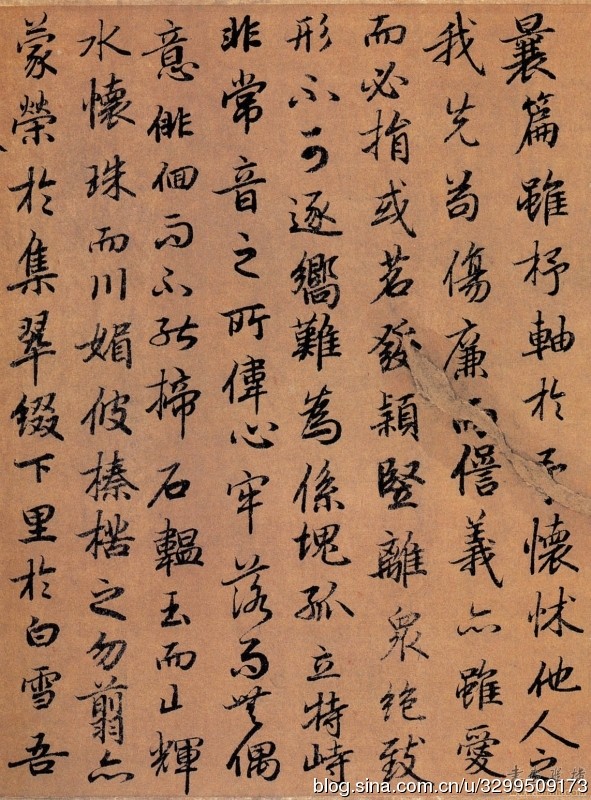 曩篇雖杼軸於予懷怵他人之
我先苟傷廉而諐義亦雖愛
而必捐或苕發穎竪離衆絶致
形不可逐響難為係塊孤立特峙
非常音之所偉心牢落而無偶
意俳佪而不能揥石韞玉而山輝
水懷珠而川媚彼榛楛之勿翦亦
蒙榮於集翠綴下里於白雪吾
blog.sina.com.cn/u/3299509173